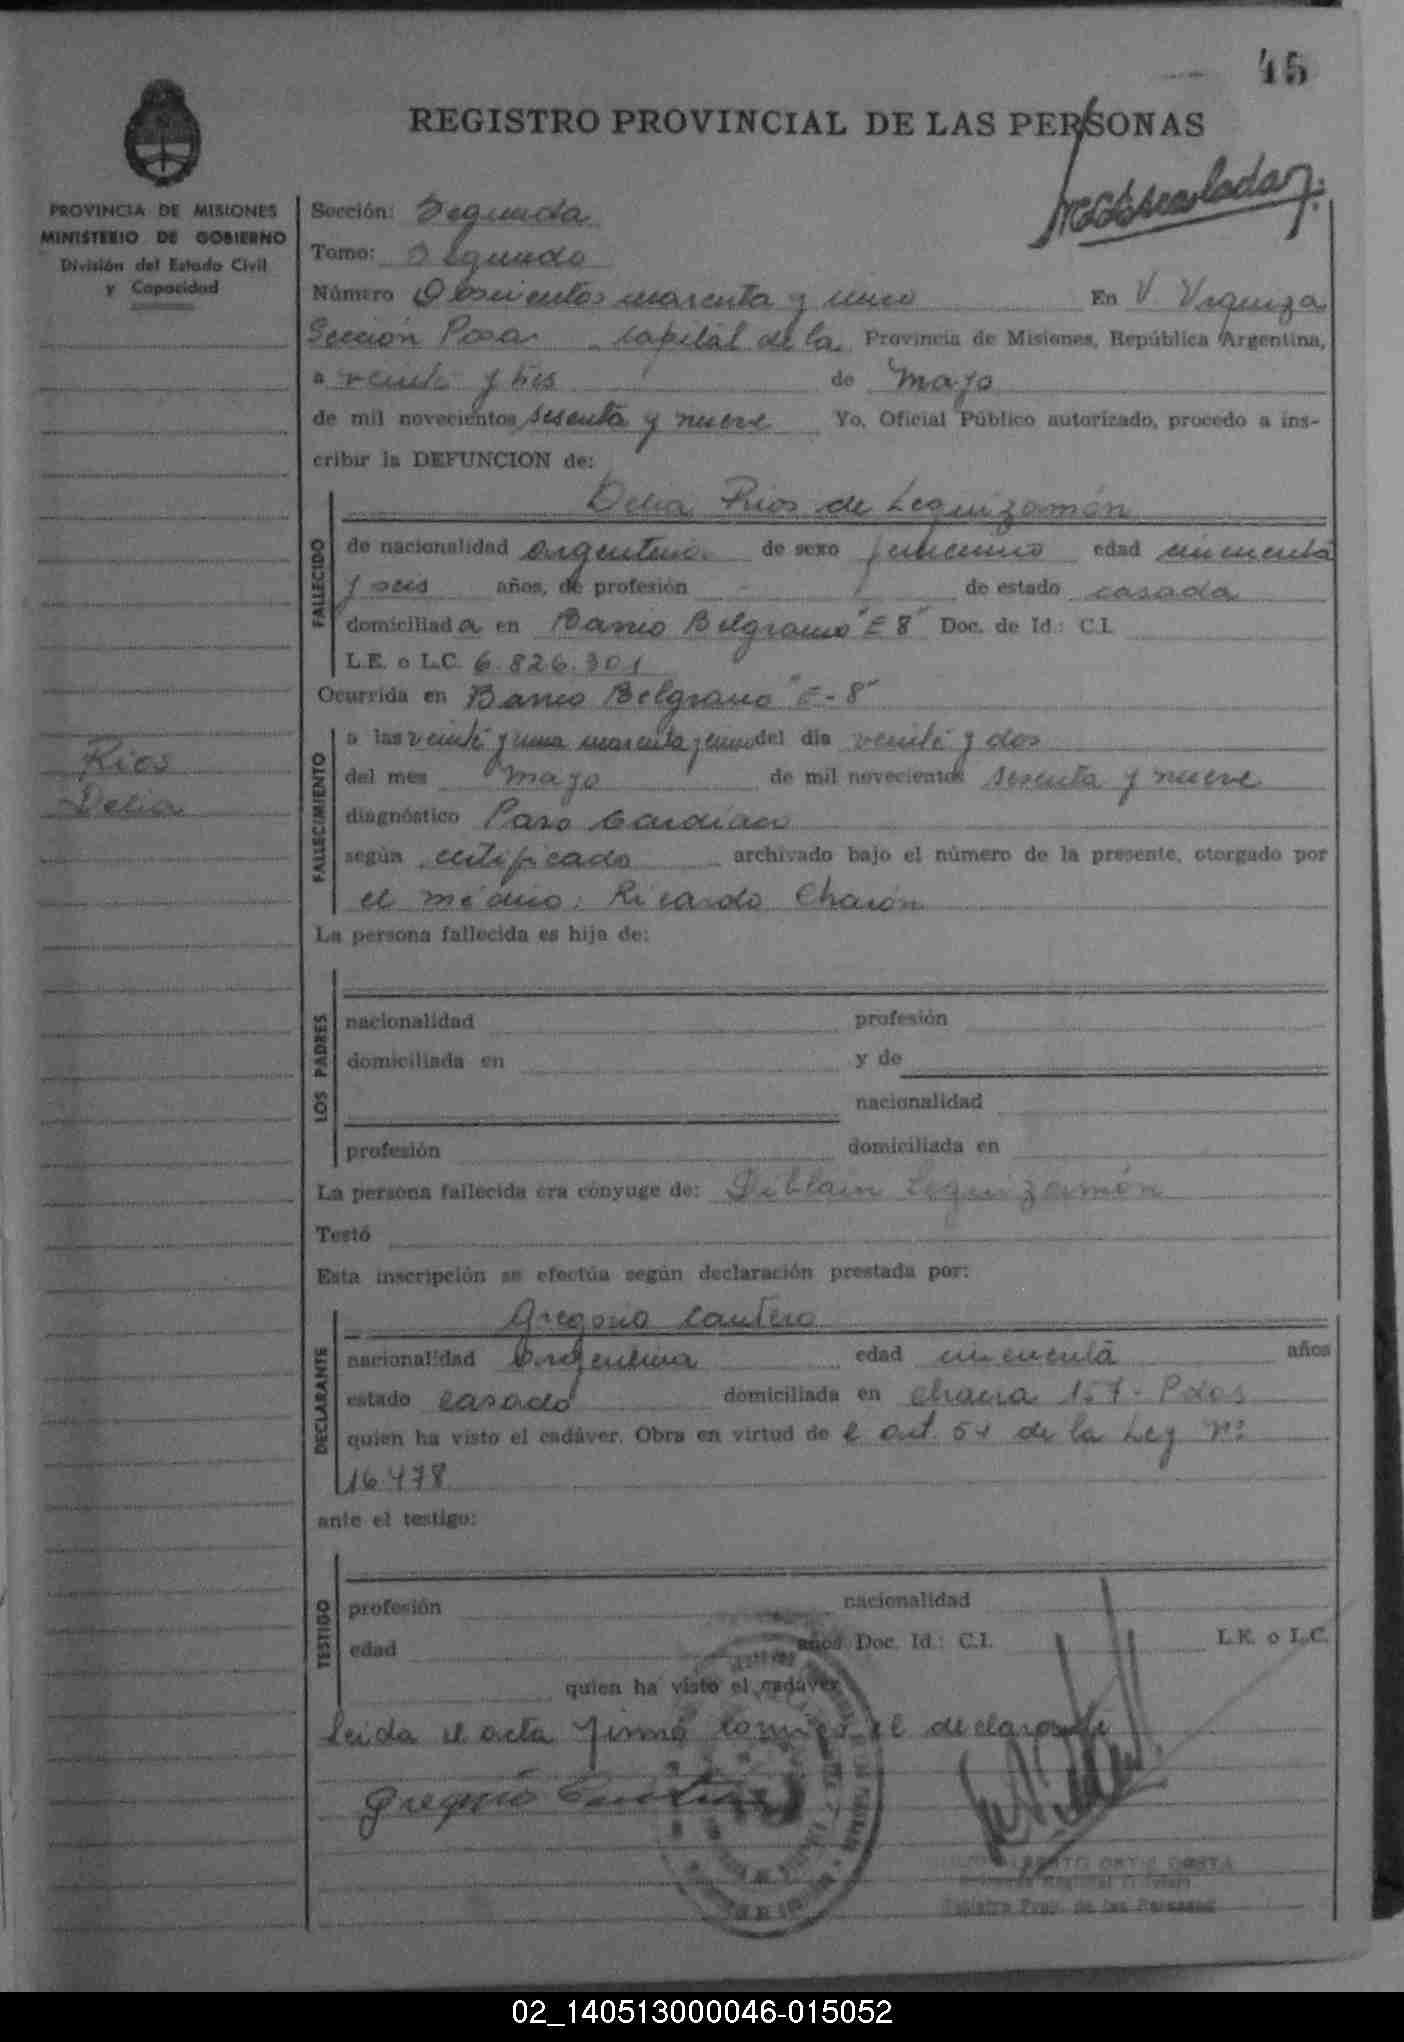 45
REGISTRO PROVINCIAL DE LAS PERSONAS
PROVINCIA DE MISIONES
MINISTERIO DE GOBIERNO
División del Estado Civil
y Capacidad
Rios
Delia
Sección: Segunda
Tomo: Segundo
Número Doscientos cuarenta y uno En V Urquiza
Sección Posas capital de la Provincia de Misiones, República Argentina,
a veinte y tres de Mayo
de mil novecientos sesenta y nueve Yo, Oficial Público autorizado, procedo a ins-
cribir la DEFUNCION de:
Delia Rios de Leguizamón
FALLECIDO
de nacionalidad argentina de sexo femenino edad cincuenta
y seis años, de profesión - de estado casada
domiciliada en Barrio Belgrano "E 8" Doc. de Id.: C.I.
L.E. o L.C. 6.826.301
Ocurrida en Barrio Belgrano "E-8"
FALLECIMIENTO
a las veinte y una cuarenta y cinco del dia veinte y dos
del mes Mayo de mil novecientos sesenta y nueve
diagnóstico Paro Cardíaco
según certificado archivado bajo el número de la presente, otorgado por
el médico: Ricardo Charón
La persona fallecida es hija de:
LOS PADRES
nacionalidad profesión
domiciliada en y de
nacionalidad
profesión domiciliada en
La persona fallecida era cónyuge de: Leguizamón
Testó
Esta inscripción se efectúa según declaración prestada por:
Gregorio Cantero
DECLARANTE
nacionalidad Argentina edad cincuenta años
estado casado domiciliada en chacra 157 - Pdas
quien ha visto el cadáver. Obra en virtud de l art. 54 de la Ley Nº
16.478
ante el testigo:
TESTIGO
profesión nacionalidad
edad años Doc. Id.: C.I. L.E. o L.C.
quien ha visto el cadáver
Leida el acta firmó conmigo el declarante
Gregorio Cantero
ALBERTO ORTIZ COSTA
Registro Prov. de las Personas
02_140513000046-015052